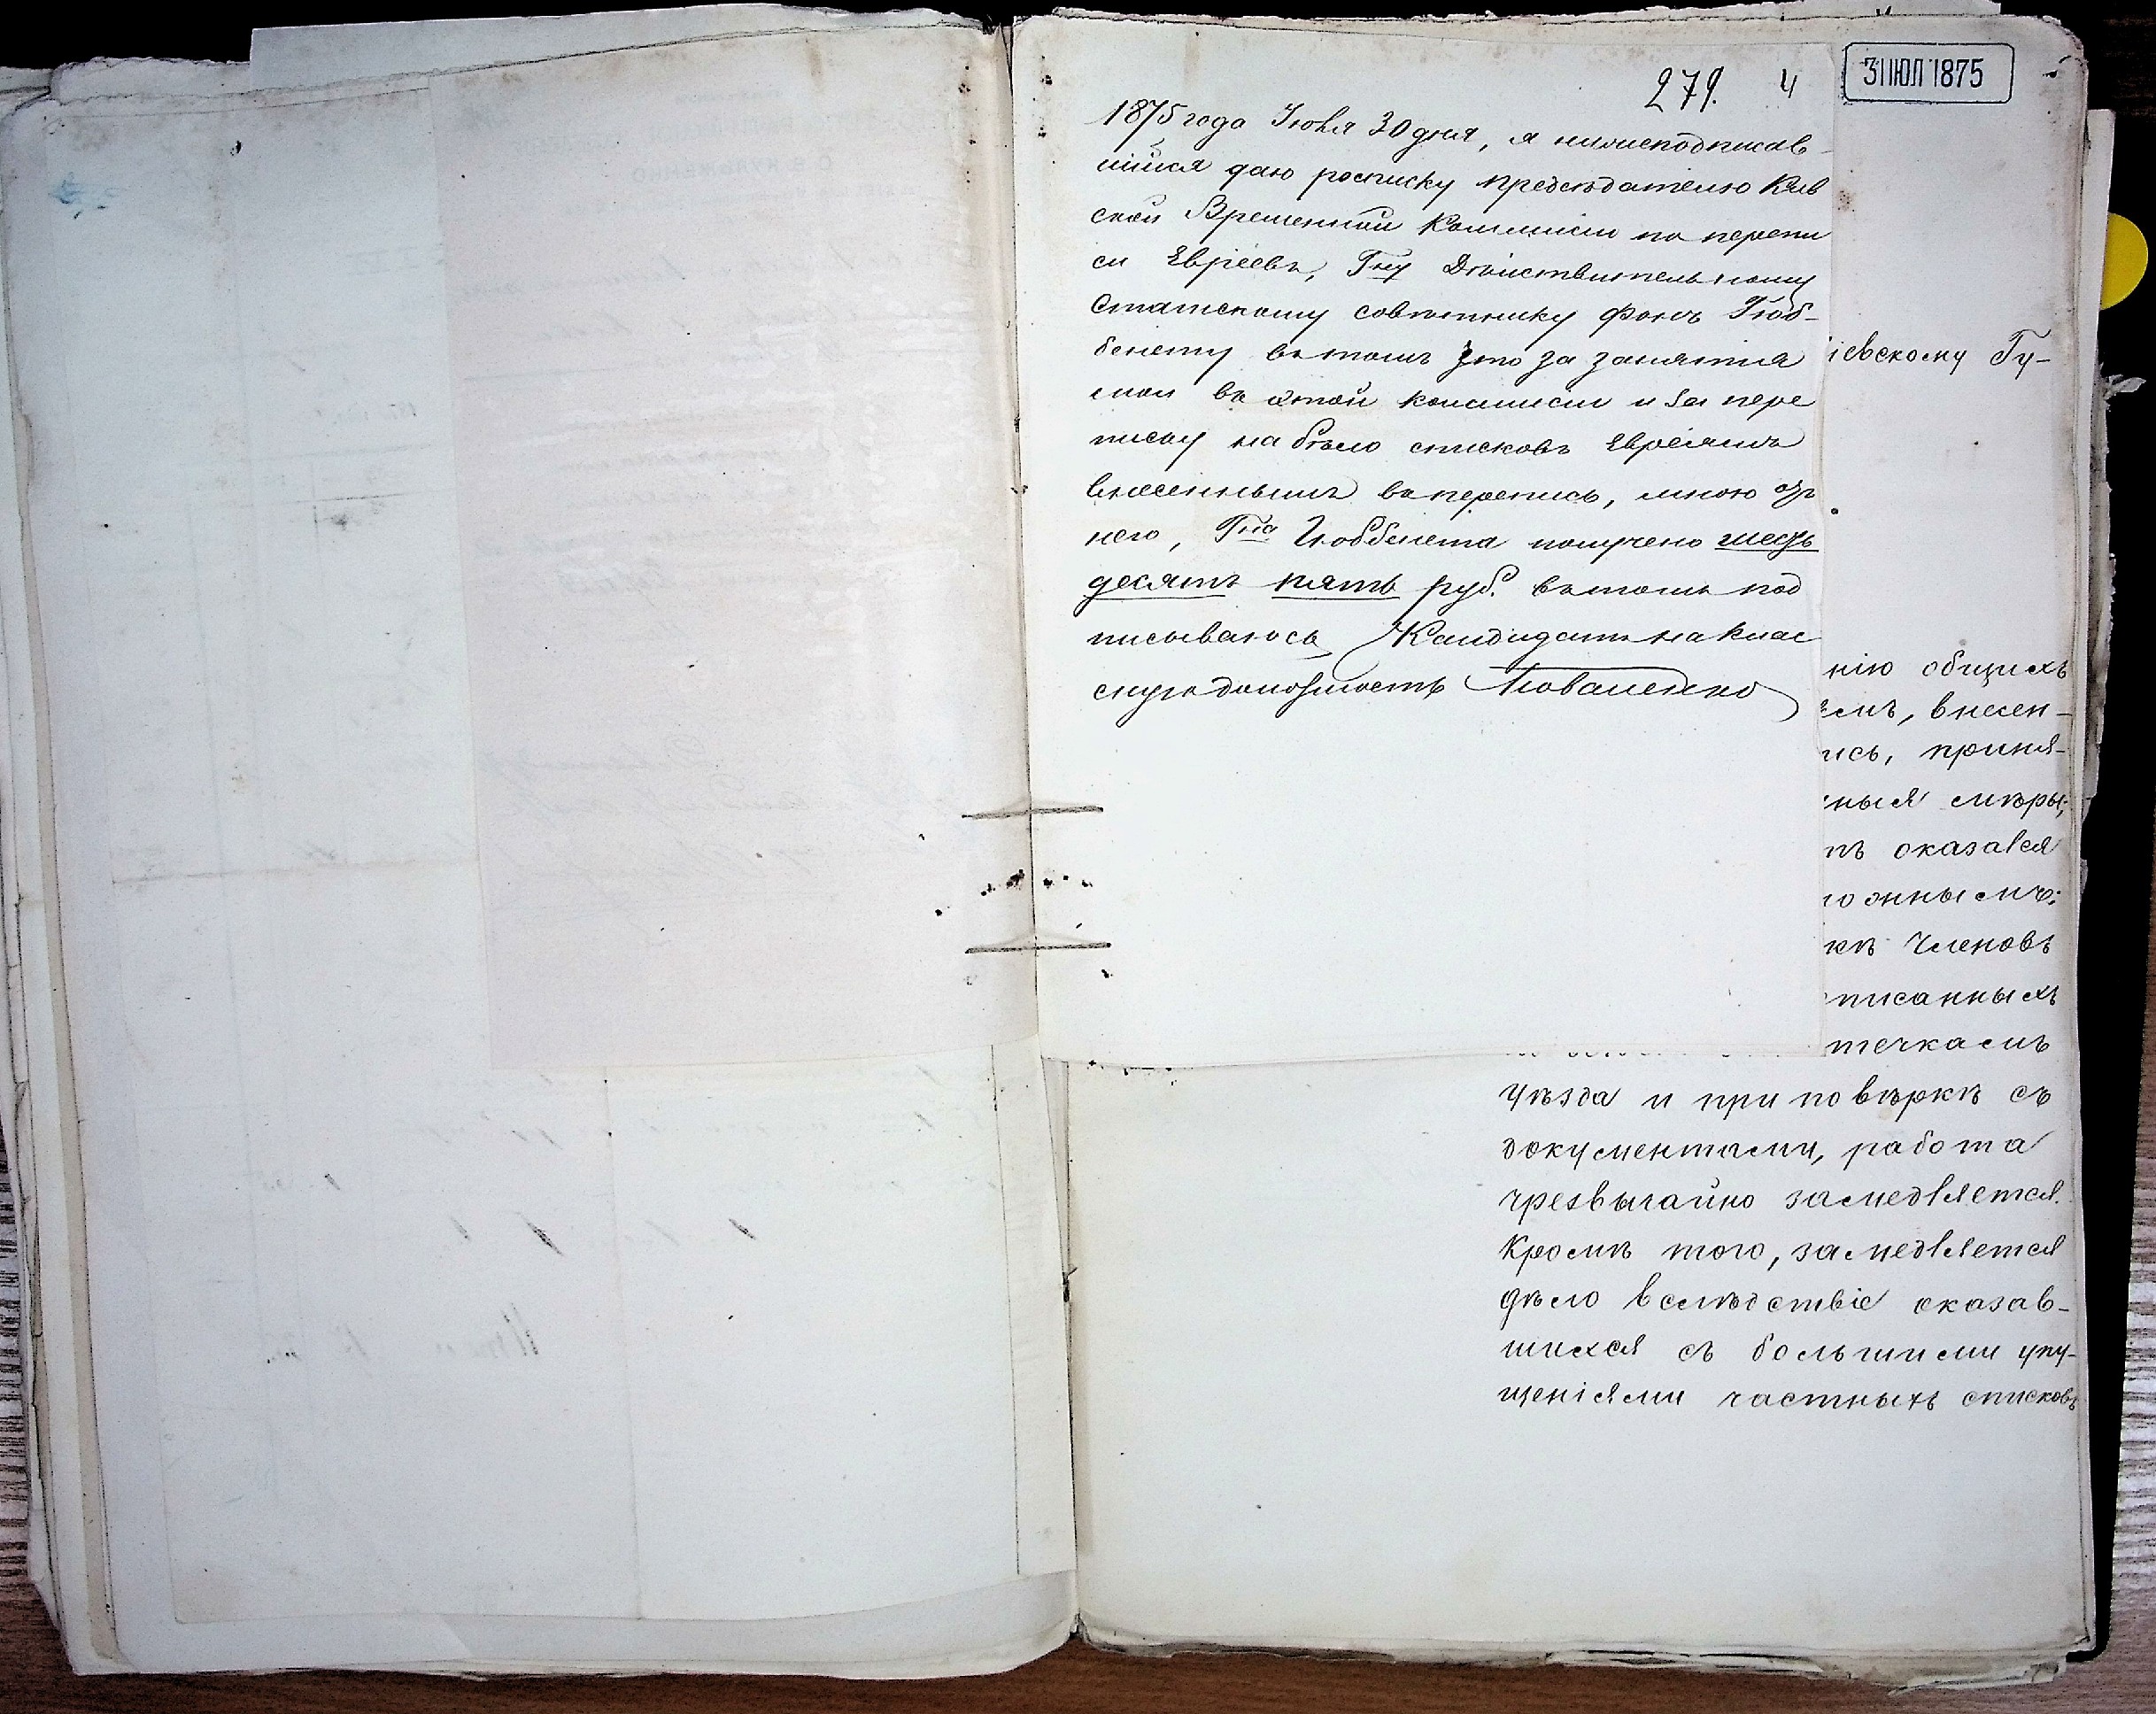 279. 4
31 ІЮЛ 1875
1875 года Іюля 30 дня, я нижеподписав-
шійся даю росписку предсѣдателю Кіев
ской Временной Коммисіи по перепи
си Евреевъ, Г-ну Дѣйствительному
Статскому совѣтнику фонъ Гюб-
бенету въ томъ что за занятія
мои въ этой коммисіи и за пере
писку на бѣло списковъ Евреямъ
внесеннымъ въ перепись, мною отъ
него, Г-на Гюббенета получено шесть
десятъ пять руб. въ томъ под
писываюсь Кандидатъ на клас
сную должность
іевскому Гу-
нію общихъ
емъ, внесен-
ись, приня-
ныя мѣры,
тъ оказался
ожнымъ;
кѣ Членовъ
писанныхъ
течкамъ
уѣзда и при повѣркѣ съ
документами, работа
чрезвычайно замедляется.
Кромѣ того, замедляется
дѣло вслѣдствіе оказав-
шихся съ большими упу-
щеніями частныхъ списковъ